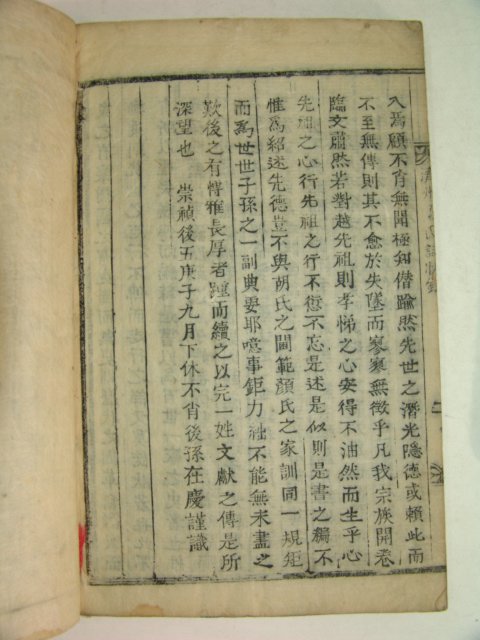 入焉顧不肖無聞極知僭踰然先世之潛光隱德或賴此而
不至無傳則其不愈於失墜而寥寥無徵乎凡我宗族開卷
臨文肅然若對越先祖則孝悌之心安得不油然而生乎心
先祖之心行先祖之行不愆不忘是述是似則是書之編不
惟爲紹述先德豈不與胡氏之閫範顔氏之家訓同一規矩
而爲世世子孫之一副典要耶噫事鉅力 不能無未盡之
歎後之有博雅長厚者踵而續之以完一姓文獻之傳是所
深望也 崇禎後五庚子九月下休不肖後孫在慶謹識